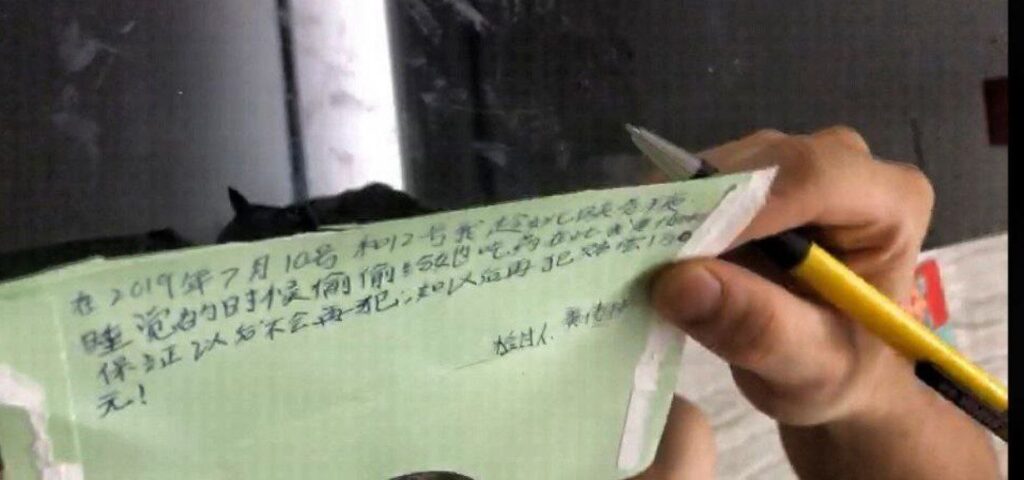 在2019年7月10号和12号我趁
睡觉的时候偷偷给她吃药在此
保证以后不会再犯，如以后再犯赔偿150
元！
检讨人